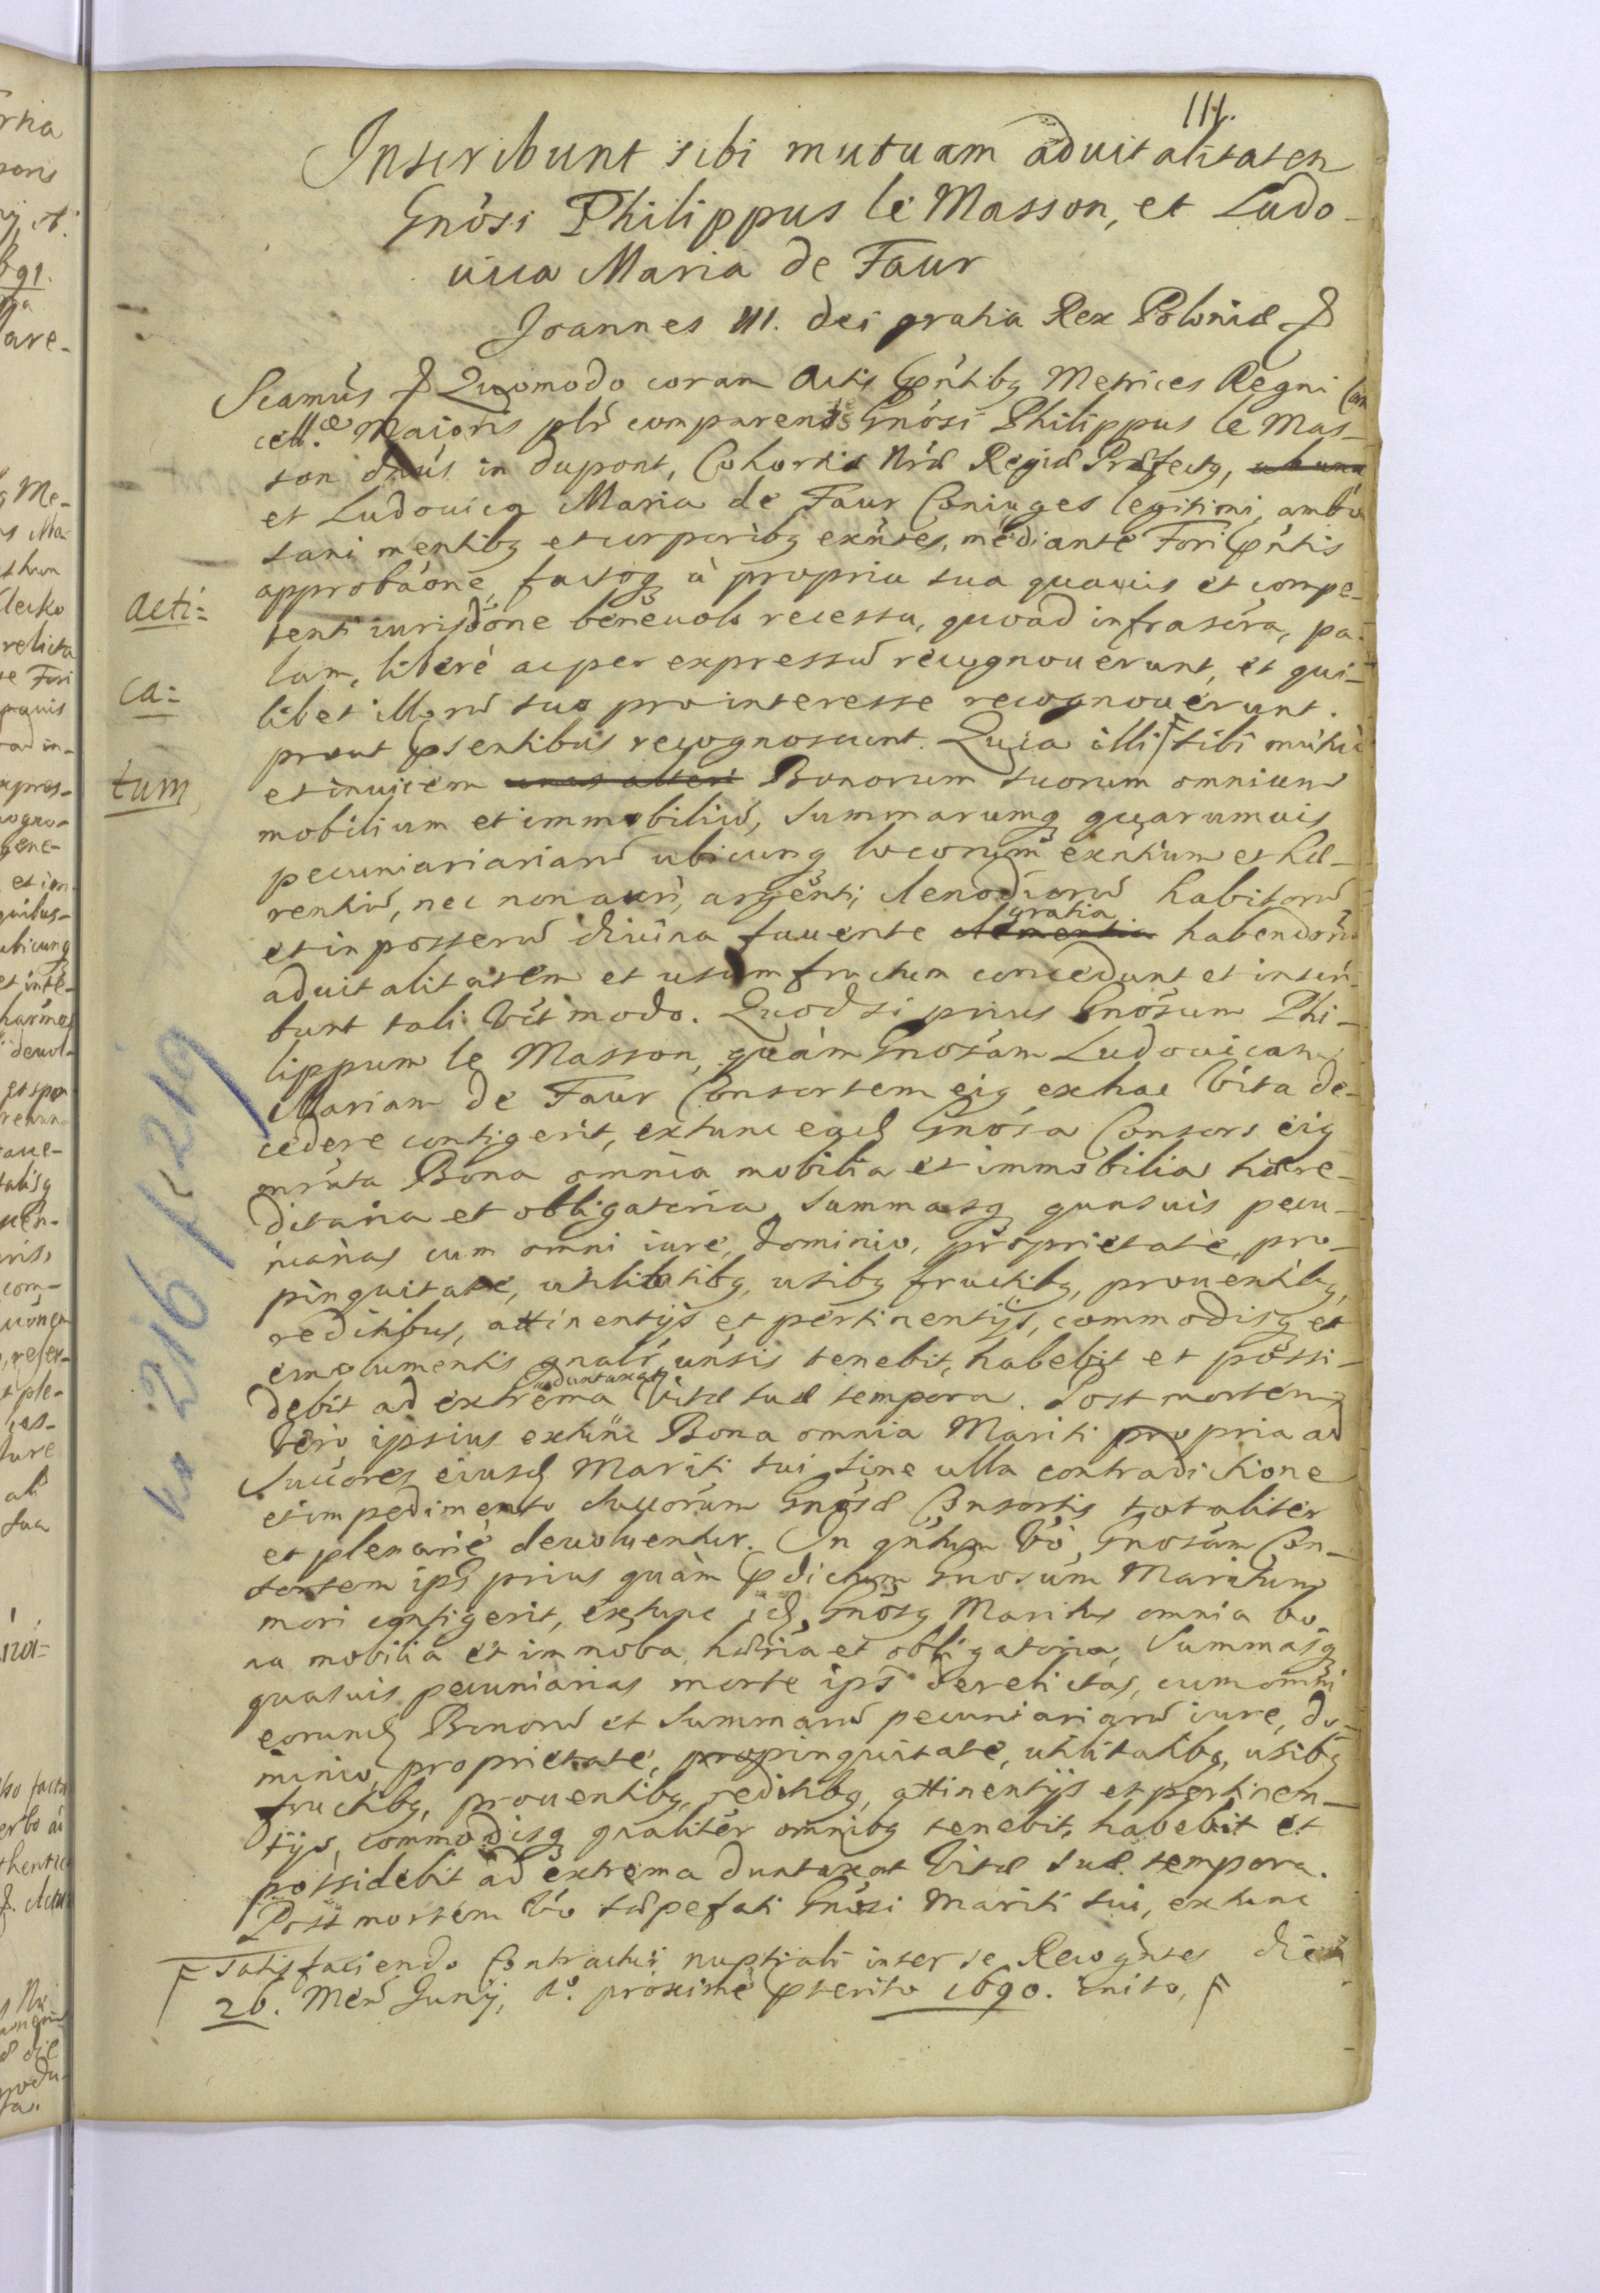 111.
Inscribunt sibi mutuam aduitalitatem
Gnősi Philippus le Masson, et Ludo-
uica Maria de Faur
Joannes III. dei gratia Rex Poloniæ
Quomodo coram Actis Metrices Regni Can
cell.æ Maioris plr comparentes Gnősi Philippus le Mas-
son dnus in dupont, Cohortis Nræ Regiæ Præfectq,
et Ludouica Maria de Faur Coniuges legitimi, ambo
sani mentibq et corporibq exñtes, mediante Fori pñtis
approbaóne, factoq à propria sua quauis et compe-
tenti iurisdóne beneuolo recessu, quoad infrascra, pa-
lam, liberè ac per expressũ recognouerunt, et qui-
libet illorũ suo pro interesse recognouerunt.
prout psentibus recognoscunt. Quia illi F sibi mutuò
et inuicem unus alteri Bonorum suorum omnium
mobilium et immobiliũ, Summarumq quarumuis
pecuniariariarũ ubicunq locorum exñtium et hæ-
rentiũ, nec non auri, argenti, clenodiorũ habitorũ
et in posterũ diuina fauente clementia gratia habendorũ
aduitalitatem et usumfructum concedunt et inscri-
bunt tali vĩt modo. Quod si prius Gnősum Phi-
lippum le Masson, quàm Gnosam Ludouicam
Mariam de Faur Consortem eiq ex hac Vita de-
cedere contigerit, extunc eađ Gnősa Consors eiq
Bona omnia mobilia et immobilia hære-
ditaria et obligatoria, Summasq quasuis pecu-
niarias cum omni iure, dominio, proprietate, pro-
pinquitate, utilitatibq, usibq fructibq, prouentibq,
reditibus, attinentijs et pertinentijs, commodisq et
emolumentis gnalr unsis tenebit, habebit et possi-
debit ad extrema duntaxat Vitæ suæ tempora. Post mortem
Vero ipsius extunc Bona omnia Mariti propria ad
Succores eiusđ Mariti sui sine ulla contradictione
et impedimento Succorum Gnősæ Consortis totaliter
et plenariè deuoluentur. In qntum Vò Gnosam Con-
sortem ips prius quàm pdictum Gnosum Maritum
mori contigerit, extunc iđ Gnősq Maritus omnia bo-
na mobilia et immoba, hæria et obligatoria, Summasq
quasuis pecuniarias morte ips derelictas, cum omni
eorunđ Bonorũ et Summarũ pecuniariarũ iure, do-
minio, proprietate, propinquitate, utilitatibq, usibq
fructibq, prouentibq, reditibq, attinentijs et pertinen-
tijs, commodisq gnaliter omnibq tenebit, habebit et
possidebit ad extrema duntaxat Vitæ suæ tempora.
Post mortem Vò sæpefati Gnősi Mariti sui, extunc
F Satisfaciendo Contractui nuptiali inter se Recogntes die
26. Mens Junij, Aº. proximè pterito 1690. inito, F
Acti=
ca=
tum